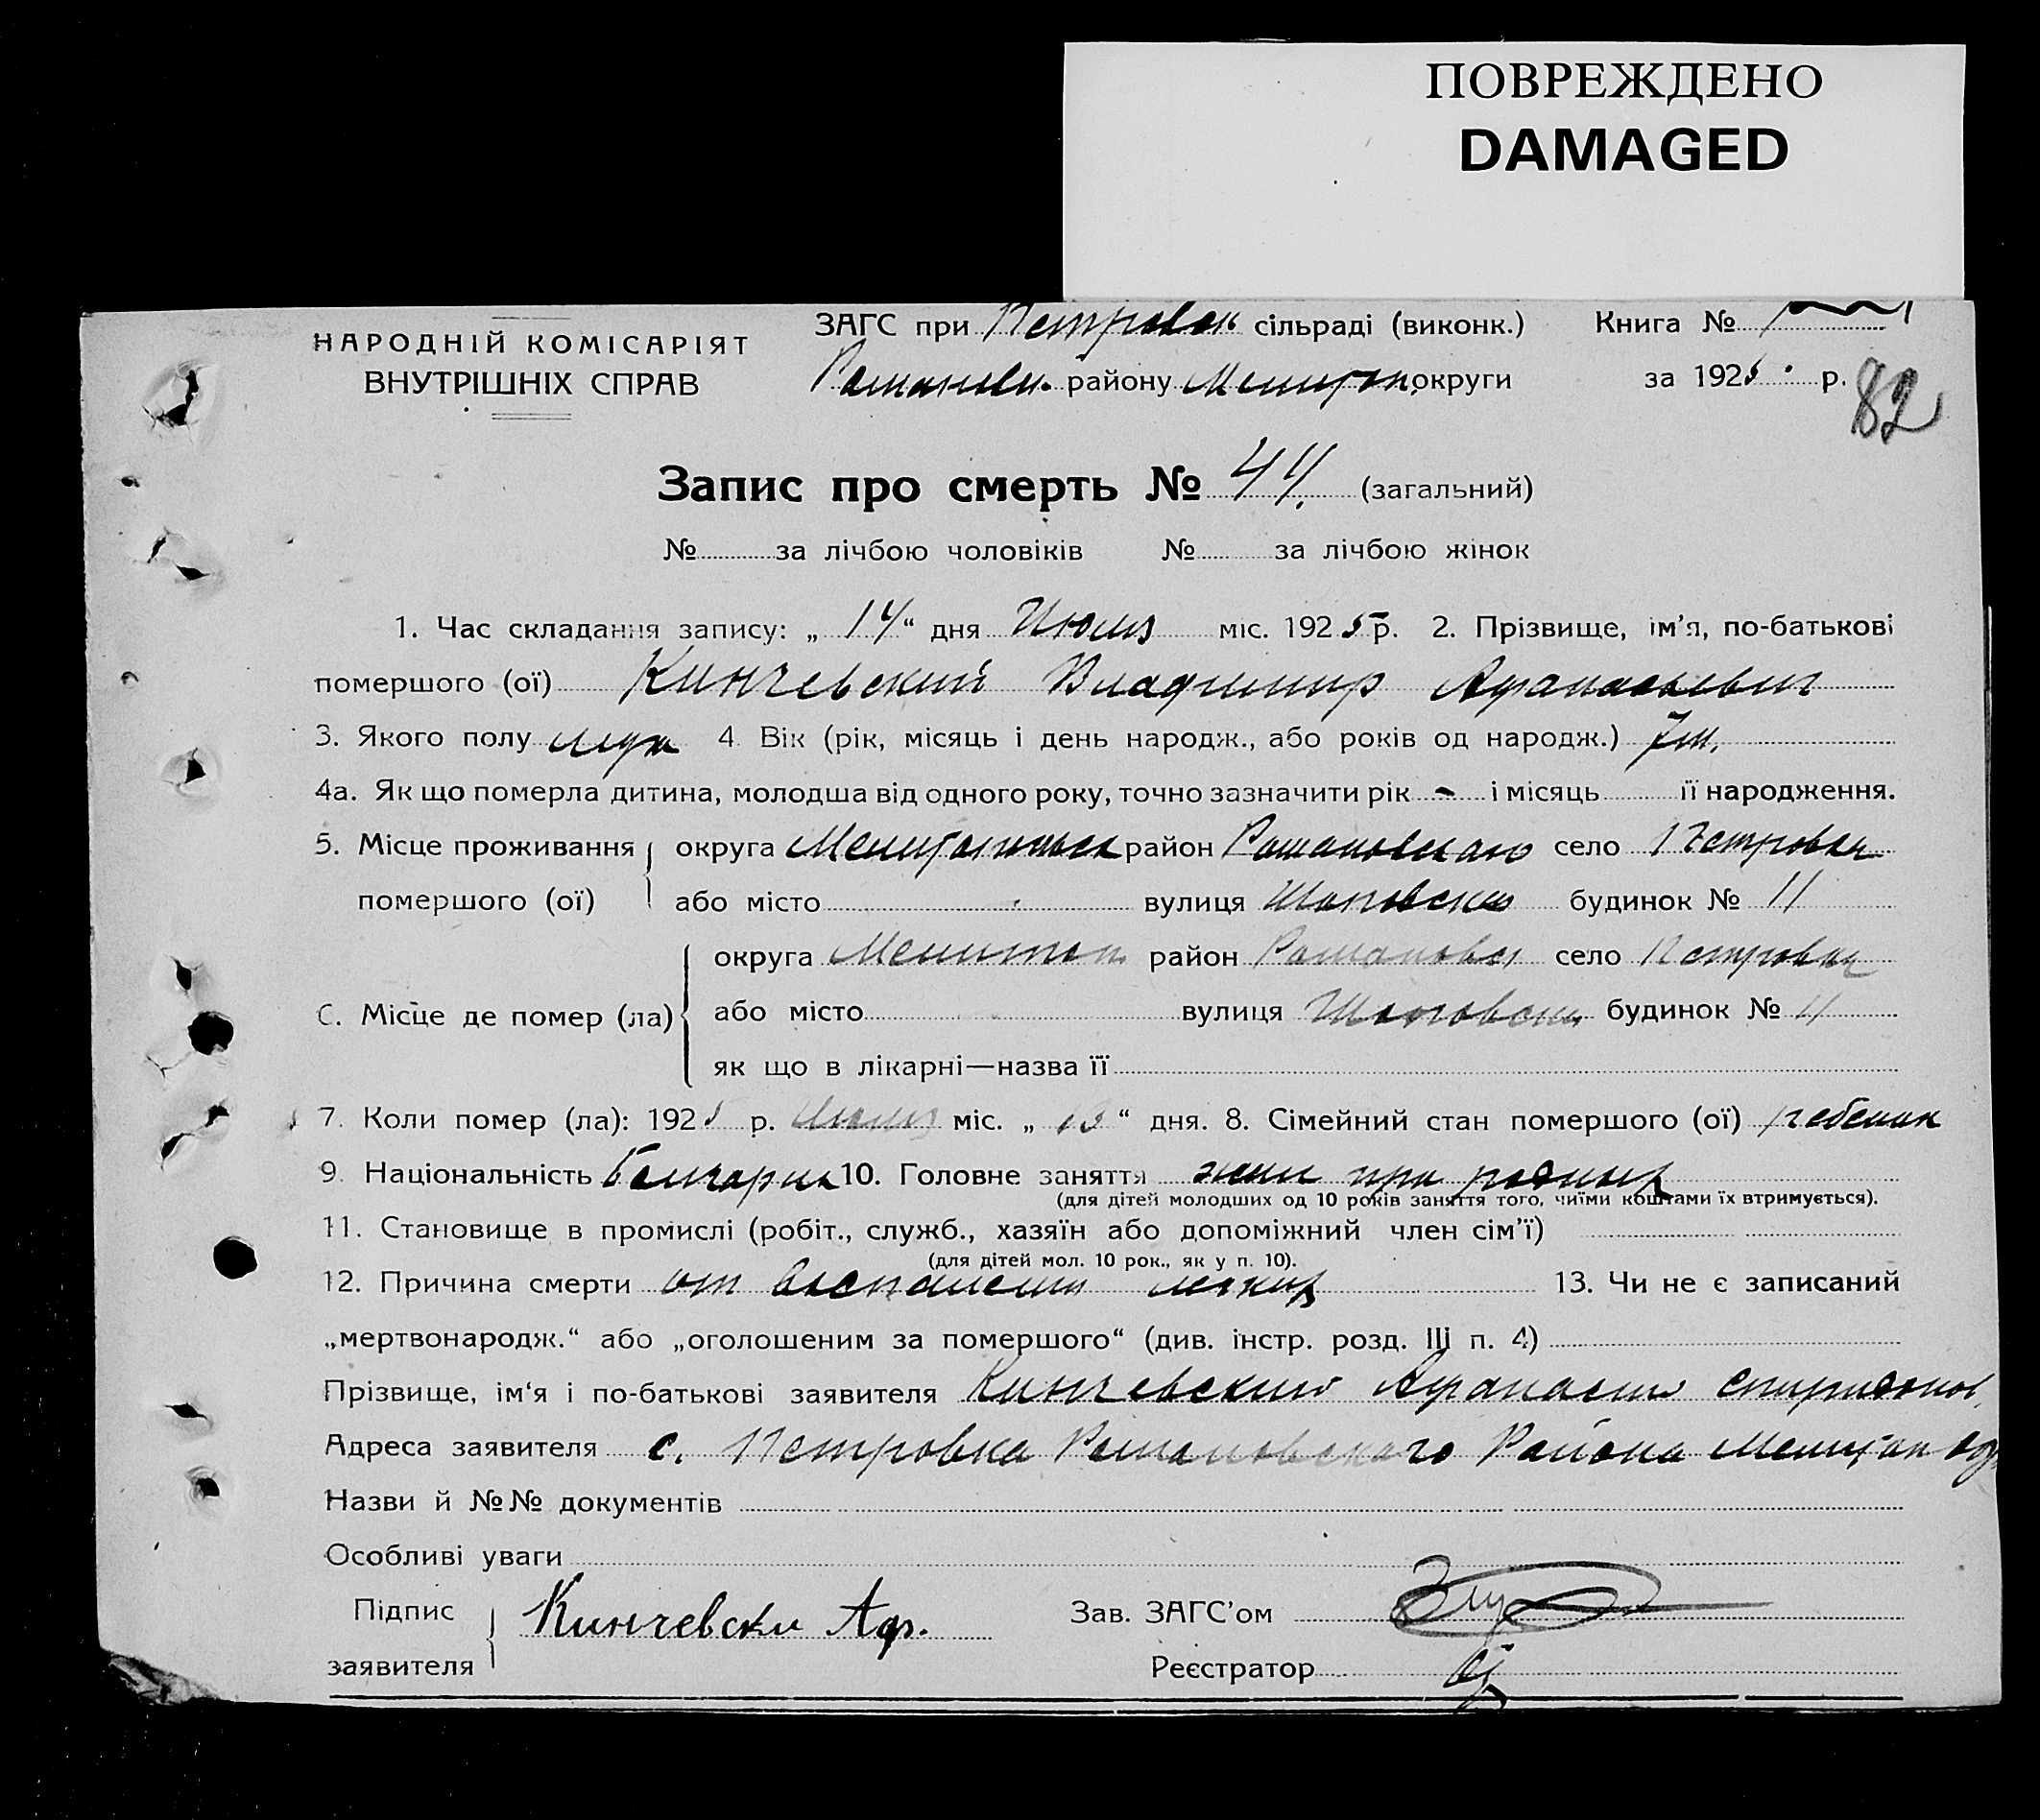 ПОВРЕЖДЕНО
DAMAGED
НАРОДНІЙ КОМІСАРІЯТ
ВНУТРІШНІХ СПРАВ
ЗАГС при Петровск. сільраді (виконк.) Книга №
Романовск. району Мелитоп. округи за 1925 р.
82
Запис про смерть № 44. (загальний)
№ за лічбою чоловіків № за лічбою жінок
1. Час складання запису: „ 14 “ дня Июля міс. 1925 р. 2. Прізвище, ім’я, по-батькові
помершого (ої) Кинчевский Владимир Афанасьевич
3. Якого полу муж 4. Вік (рік, місяць і день народж., або років од народж.)
4а. Як що померла дитина, молодша від одного року, точно зазначити рік - і місяць її народження.
5. Місце проживання округа Мелитопольск район Романовского село Петровка
помершого (ої) або місто вулиця будинок № 11
округа Мелитоп. район Романовск село Петровка
С. Місце де помер (ла) або місто вулиця будинок № 11
як що в лікарні—назва її
7. Коли помер (ла): 1925 р. Июля міс. „ 13 “ дня. 8. Сімейний стан помершого (ої) ребенок
9. Національність Болгарин 10. Головне заняття жил при родных
(для дітей молодших од 10 років заняття того, чиїми коштами їх втримується).
11. Становище в промислі (робіт., служб., хазяїн або допоміжний член сім’ї)
(для дітей мол. 10 рок., як у п. 10).
12. Причина смерти от воспаления легких 13. Чи не є записаний
„мертвонародж.“ або „оголошеним за помершого“ (див. інстр. розд. III п. 4)
Прізвище, ім‘я і по-батькові заявителя Кинчевский Афанасий Спиридонов.
Адреса заявителя с. Петровка Романовского Района Мелитоп окр
Назви й №№ документів
Особливі уваги
Підпис Кинчевски Аф. Зав. ЗАГС’ом
заявителя Реєстратор